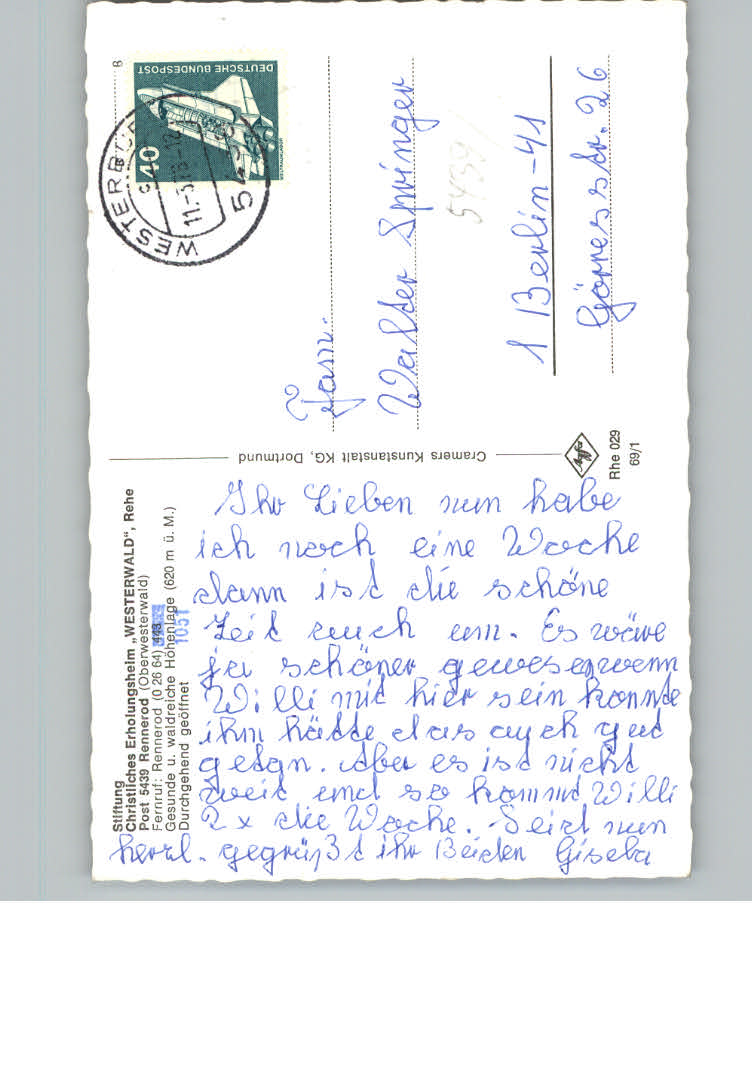 Stiftung
Christliches Erholungsheim „WESTERWALD“, Rehe
Post 5439 Rennerod (Oberwesterwald)
Fernruf: Rennerod (0 26 64) 448
1051
Gesunde u. waldreiche Höhenlage (620 m ü. M.)
Durchgehend geöffnet
Ihr Lieben nun habe
ich noch eine Woche
dann ist die schöne
Zeit auch um. Es wäre
ja schöner gewesen wenn
Willi mit hier sein konnte
ihm hätte das auch gut
getan. Aber es ist nicht
weit und so kommt Willi
2 x die Woche. Seid nun
herzl. gegrüßt ihr Beiden Gisela
Cramers Kunstanstalt KG, Dortmund
Agfa
Rhe 029
69/1
DEUTSCHE BUNDESPOST
40
WESTERBURG
54
Fam.
Walter Springer
5439
1 Berlin-41
Görresstr. 26